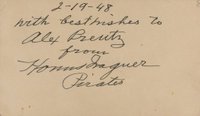 2-19-48
with best wishes to
Alex Preutz
from
Honus Wagner
Pirates